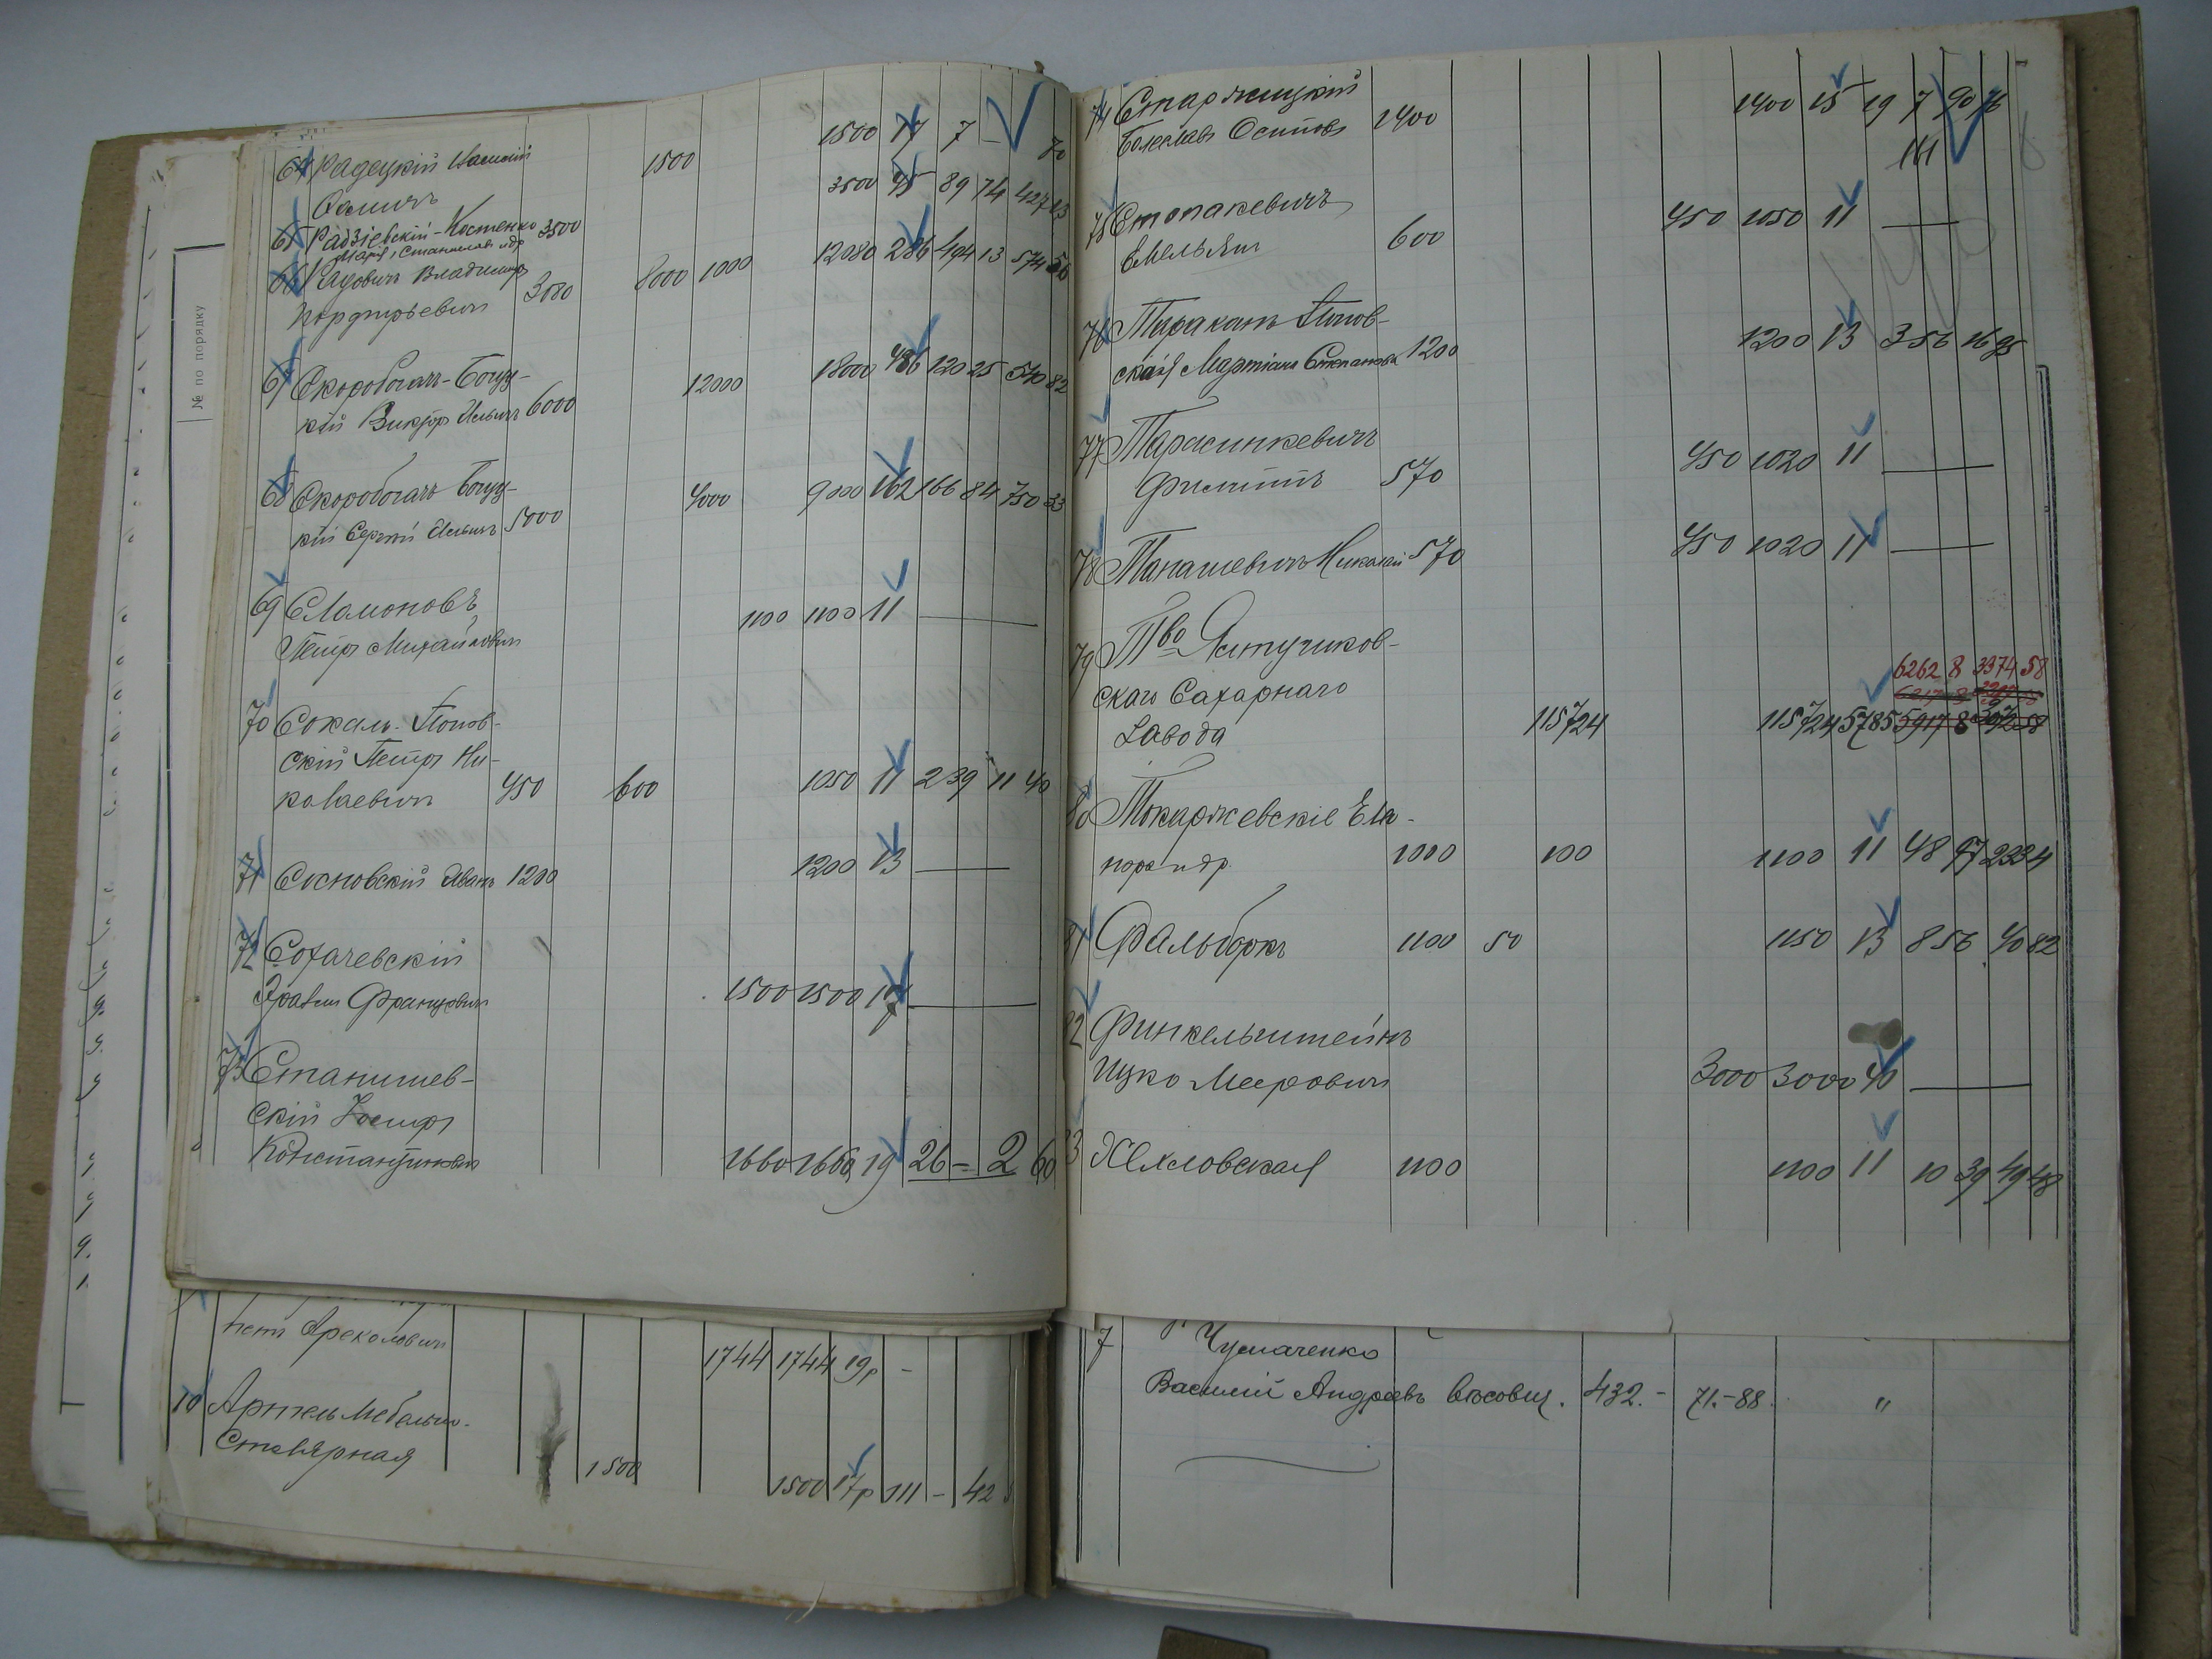 1500 17 7 —
64 Радецкій 1500
70
3500 95 89 74 427 23
65 Радзіевскій-Костенко 3500
Марія, Станиславъ и др.
12080 286 494 13 574 56
66 Радовичъ Владимиръ 8000 1000
Порфирьевичъ 3080
18000 486 120 25 570 82
67 Скоробогачъ-Богуц- 12000
кій Викторъ Ильичъ 6000
68 Скоробогачъ Богуц- 4000 9000 162 166 84 750 33
кій Сергѣй Ильичъ 5000
69 Сламоновъ 1100 1100 11 —
Петръ Михайловичъ
70 Сокалъ-Попов-
скій Петръ Ни- 1050 11 239 11 40
колаевичъ 450 600
71 Сосновскій Иванъ 1200 1200 13 —
72 Сохачевскій
Францовичъ 1500 1500 17 —
73 Станишев-
скій Іосифъ
Константиновъ 1660 1660 19 26 — 2 60
№ по порядку
1744 1744 19р -
10 Артель Мебельно-
Столярная 1500
1500 17р 111 - 42
74 Старжицкій 1400 15 19 7 90 76
Болеславъ Осиповъ 1400
161
75 Стопакевичъ 450 1050 11 —
Емельян 600
76 Таракан Попов- 1200 13 3 56 16 95
ская Степановна 1200
77 Тарасинкевичъ 450 1020 11 —
Филиппъ 570
78 Танашевичъ Николай 570 450 1020 11 —
79 Тво Ялтушков-
скаго Сахарнаго 6262 8 3374 58
Завода 115724 115724 5785 5917 8
80 Токаржевскіе Еле-
и др. 1000 100 1100 11 48 97 223 4
81 Фальборкъ 1100 50 1150 13 8 56 40 82
82 Финкельштейнъ
Ицко Мееровичъ 3000 3000 40 —
83 1100 1100 11 10 39 49 48
7 Чумаченко
Василій Андреевъ 432.- 71.-88. "